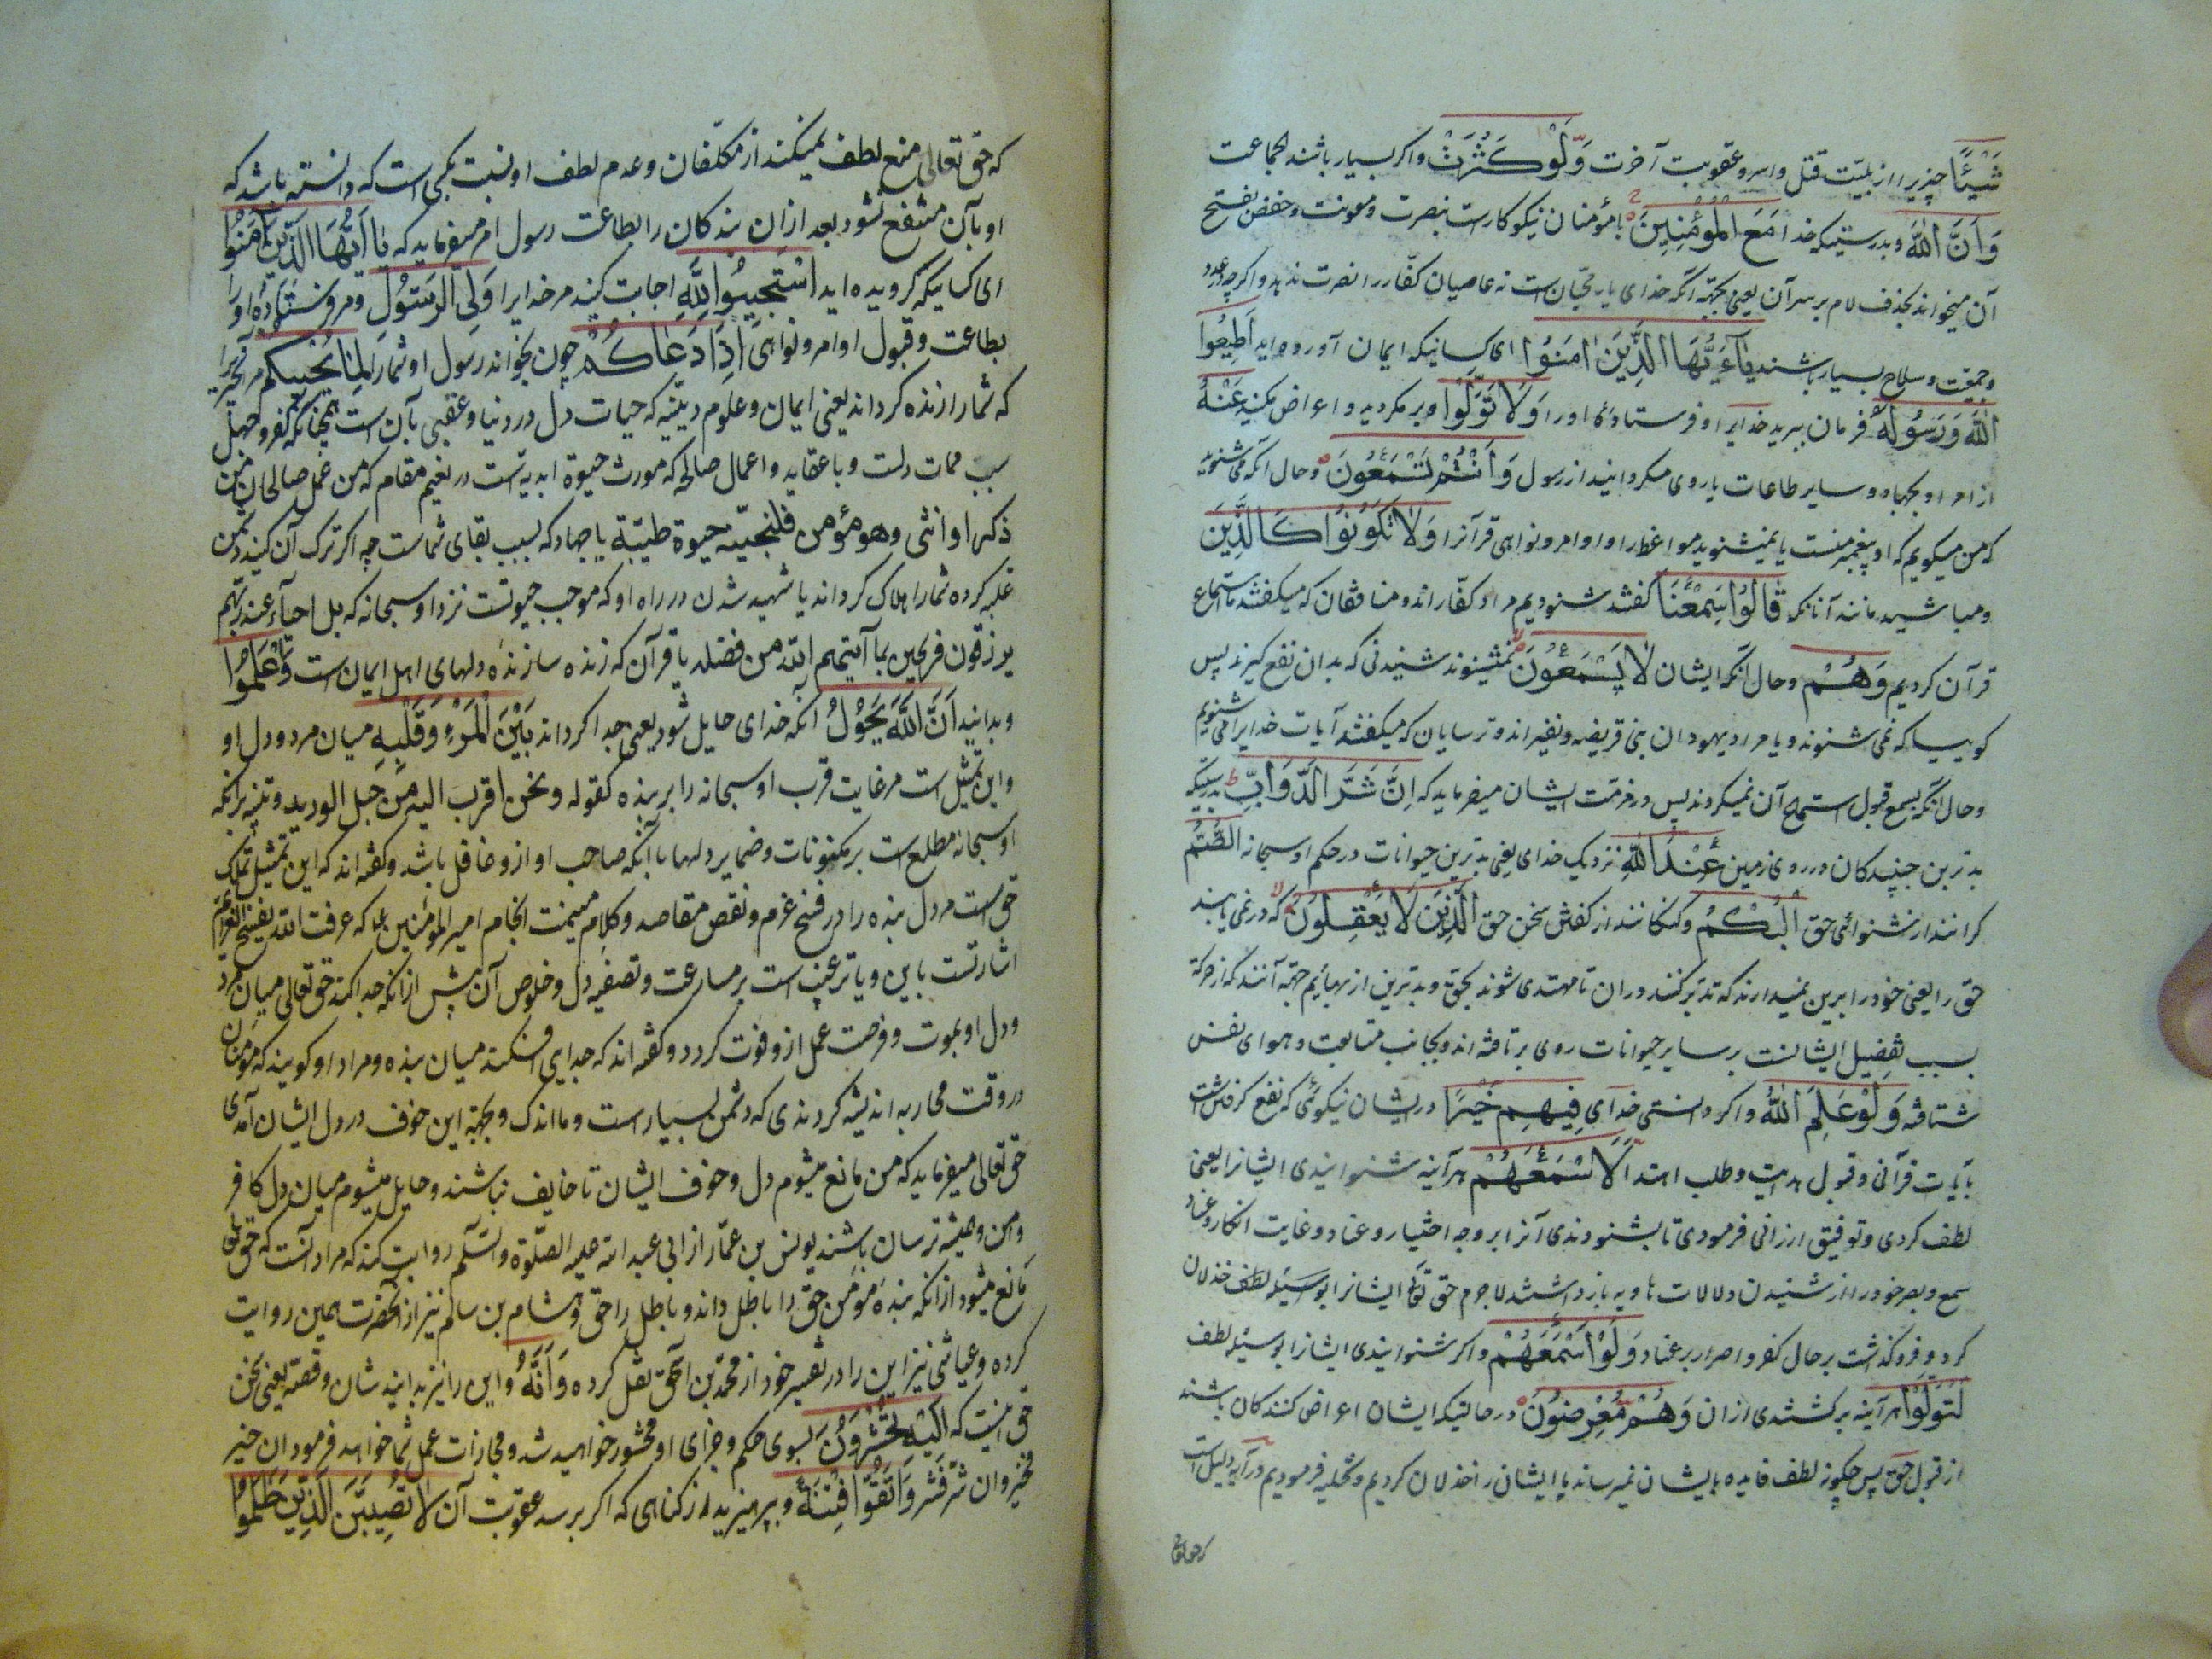 شَيْئًا چیزیرا از بلیّت قتل واسر وعقوبت آخرت وَّلَوْ كَثُرَتْ واکر بسیار باشند انجماعت
وَاَنَّ اللّٰهَ وبدرستیکه خدا مَعَ الْمُؤْمِنِينَ با مؤمنان نیکوکارست بنصرت ومعونت وحفص بفتح
آن میخواند بحذف لام بر سر آن یعنی بجهة آنکه خدای یار محبّان است نه عاصیان کفّار را نصرت ندهد واکرچه عدد
وجمعیّت وسلاح بسیار باشند يٰآءَيُّهَا الَّذِيْنَ اٰمَنُوْا ای کسانیکه ایمان آورده اید اَطِيْعُوا
اللّٰهَ وَرَسُوْلَهٗ فرمان برید خدایرا و فرستادهٔ او را وَلَا تَوَلَّوْا وبر مکردید واعراض مکنید عَنْهُ
از امر او بجهاد وسایر طاعات یا روی مکردانید از رسول وَاَنْتُمْ تَسْمَعُوْنَ وحال آنکه می شنوید
که من میکویم که او پیغمبر منست یا میشنوید مواعظ را واوامر ونواهی قرآنرا وَلَا تَكُوْنُوْا كَالَّذِيْنَ
ومباشید مانند آنانکه قَالُوْا سَمِعْنَا کفتند شنودیم مراد کفّارند ومنافقان که میکفتند ما استماع
قرآن کردیم وَهُمْ وحال آنکه ایشان لَا يَسْمَعُوْنَ نمیشنوند شنیدنی که بدان نفع کیرند پس
کوییا که نمی شنوند ویا مراد یهودان بنی قریضه ونضیراند وترسایان که میکفتند آیات خدایرا می شنویم
وحال آنکه بسمع قبول استماع آن نمیکردند پس در مذمّت ایشان میفرماید که اِنَّ شَرَّ الدَّوَابِّ بدرستیکه
بدترین جنبندکان در روی زمین عِنْدَ اللّٰهِ نزدیک خدای یعنی بدترین حیوانات در حکم او سبحانه الصُّمُّ
کرانند از شنوائی حق الْبُكْمُ وکنکانند از کفتن سخن حق الَّذِيْنَ لَا يَعْقِلُوْنَ که در نمی یابند
حق را یعنی خود را برین نمیدارند که تدبّر کنند در آن تا مهتدی شوند بحق وبدترین از بهائم جهة آنند که از هر که
بسبب تفضیل ایشانست بر سایر حیوانات روی برتافته اند وبجانب متابعت وهوای نفس
شتافته وَلَوْ عَلِمَ اللّٰهُ واکر دانستی خدای فِيْهِمْ خَيْرًا در ایشان نیکوئی که نفع کرفتن است
بآیات قرآنی وقبول هدایت وطلب اهتدا لَاَسْمَعَهُمْ هر آینه شنوانیدی ایشانرا یعنی
لطف کردی وتوفیق ارزانی فرمودی تا بشنودندی آنرا بر وجه اختیار وعناد وغایت انکار وعناد
سمع وبصر خود را از شنیدن دلالات هادیه باز داشتند لا جرم حق تعالی ایشانرا بوسیلهٔ لطف خذلان
کرد وفرو کذاشت بر حال کفر واصرار بر عناد وَلَوْ اَسْمَعَهُمْ واکر شنوانیدی ایشانرا بوسیلهٔ لطف
لَتَوَلَّوْا هر آینه برکشتندی از ان وَهُمْ مُّعْرِضُوْنَ در حالتیکه ایشان اعراض کنندکان باشند
از قبول حق پس چکونه لطف فایده بایشان نمیرساند پا ایشان را خذلان کردیم وتخلیه فرمودیم در آیه دلیل است
که حق تعالی
که حق تعالی منع لطف نمیکند از مکلّفان وعدم لطف او نسبت بکسی است که دانسته باشد که
او بآن منتفع نشود بعد از ان بندکان را بطاعت رسول امر میفرماید که يَا اَيُّهَا الَّذِيْنَ اٰمَنُوْا
ای کسانیکه کرویده اید اسْتَجِيْبُوْا لِلّٰهِ اجابت کنید مر خدایرا وَلِلرَّسُوْلِ ومر فرستادهٔ او را
بطاعت وقبول اوامر ونواهی اِذَا دَعَاكُمْ چون بخواند رسول او شمارا لِمَا يُحْيِيْكُمْ مر آنچیزیرا
که شمارا زنده کرداند یعنی ایمان وعلوم دینیّه که حیات دل در دنیا وعقبی بآن است همچنانکه کفر وجهل
سبب ممات دلست ویا عقاید واعمال صالحه که مورث حیوة ابدیّه است در نعیم مقام که من عمل صالحا من
ذکر او انثی وهو مؤمن فلنحیینّه حیوة طیّبة یا جهاد که بسبب بقای شماست چه اکر ترک آن کنید دشمن
غلبه کرده شمارا هلاک کرداند یا شهید شدن در راه او که موجب حیوتست نزد او سبحانه که بل احیاء عند ربّهم
یرزقون فرحین بما آتیهم اللّه من فضله یا قرآن که زنده سازندهٔ دلهای اهل ایمان است وَاعْلَمُوْا
وبدانید اَنَّ اللّٰهَ يَحُوْلُ آنکه خدای حایل شود یعنی جدا کرداند بَيْنَ الْمَرْءِ وَقَلْبِهٖ میان مرد ودل او
واین تمثیل است مر غایت قرب او سبحانه را بر بنده کقوله ونحن اقرب الیه من حبل الورید وتنبیه بر آنکه
او سبحانه مطلع است بر مکنونات وضمایر دلها با آنکه صاحب او از و غافل باشد وکفته اند که این تمثیل تملّک
حق است مر دل بنده را در فسخ عزم ونقض مقاصد وکلام میمنت انجام امیر المؤمنین ع که عرفت اللّه بفسخ العزائم
اشارتست باین ویا ترغیب است بر مسارعت وتصفیه دل وخلوص آن پیش از انکه جدا کند حق تعالی میان مرد
ودل او بموت وفرصت عمل از و فوت کردد وکفته اند که جدایی افکند میان بنده ومراد او کویند که مؤمنان
در وقت محاربه اندیشه کردندی که دشمن بسیار است وما اندک وبجهة این خوف در دل ایشان آمدی
حق تعالی میفرماید که من مانع میشوم دل وخوف ایشان تا خایف نباشند وحایل میشوم میان دل کافر
وامن و همیشه ترسان باشند یونس بن عمّار از ابی عبد اللّه علیه الصّلوة والسّلم روایت کند که مراد آنست که حق تعالی
مانع میشود از انکه بندهٔ مؤمن حق را باطل داند وباطل را حق وهشام بن سالم نیز از آنحضرت همین روایت
کرده وعیاشی نیز این را در تفسیر خود از محمّد بن اسحق نقل کرده وَاَنَّهٗ واین را نیز بدانید شان وقصّه یعنی سخن
حق اینست که اِلَيْهِ تُحْشَرُوْنَ بسوی حکم وجزای او محشور خواهید شد ومجازات عمل شما خواهد فرمود ان خیر
فخیر وان شرّ فشر وَاتَّقُوْا فِتْنَةً وبپرهیزید از کناهی که اکر برسد عقوبت آن لَا تُصِيْبَنَّ الَّذِيْنَ ظَلَمُوْا